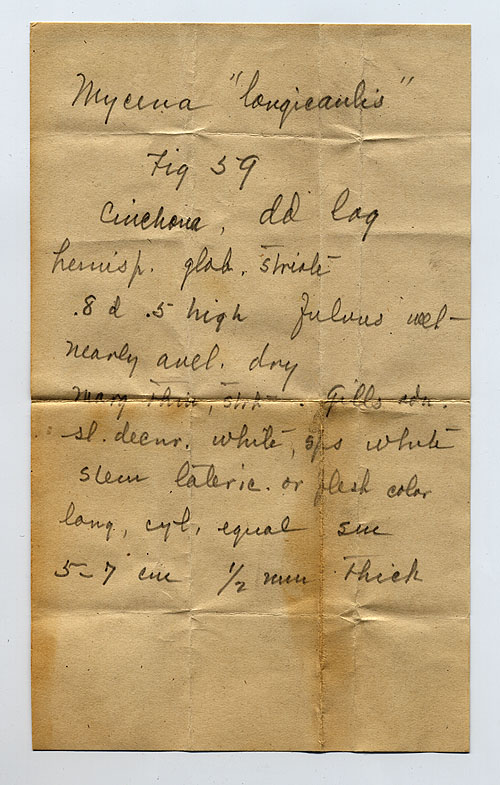 Mycena "longicaulis"
Fig 59
Cinchona, dd log
hemisp. glob. striate
.8 d .5 high fulvus wet -
nearly avel. dry
marg thin, . Gills adn.
sl. decur. white, sps white
stem lateric. or flesh color
long, cyl, equal sm
5-7 cm 1/2 mm thick